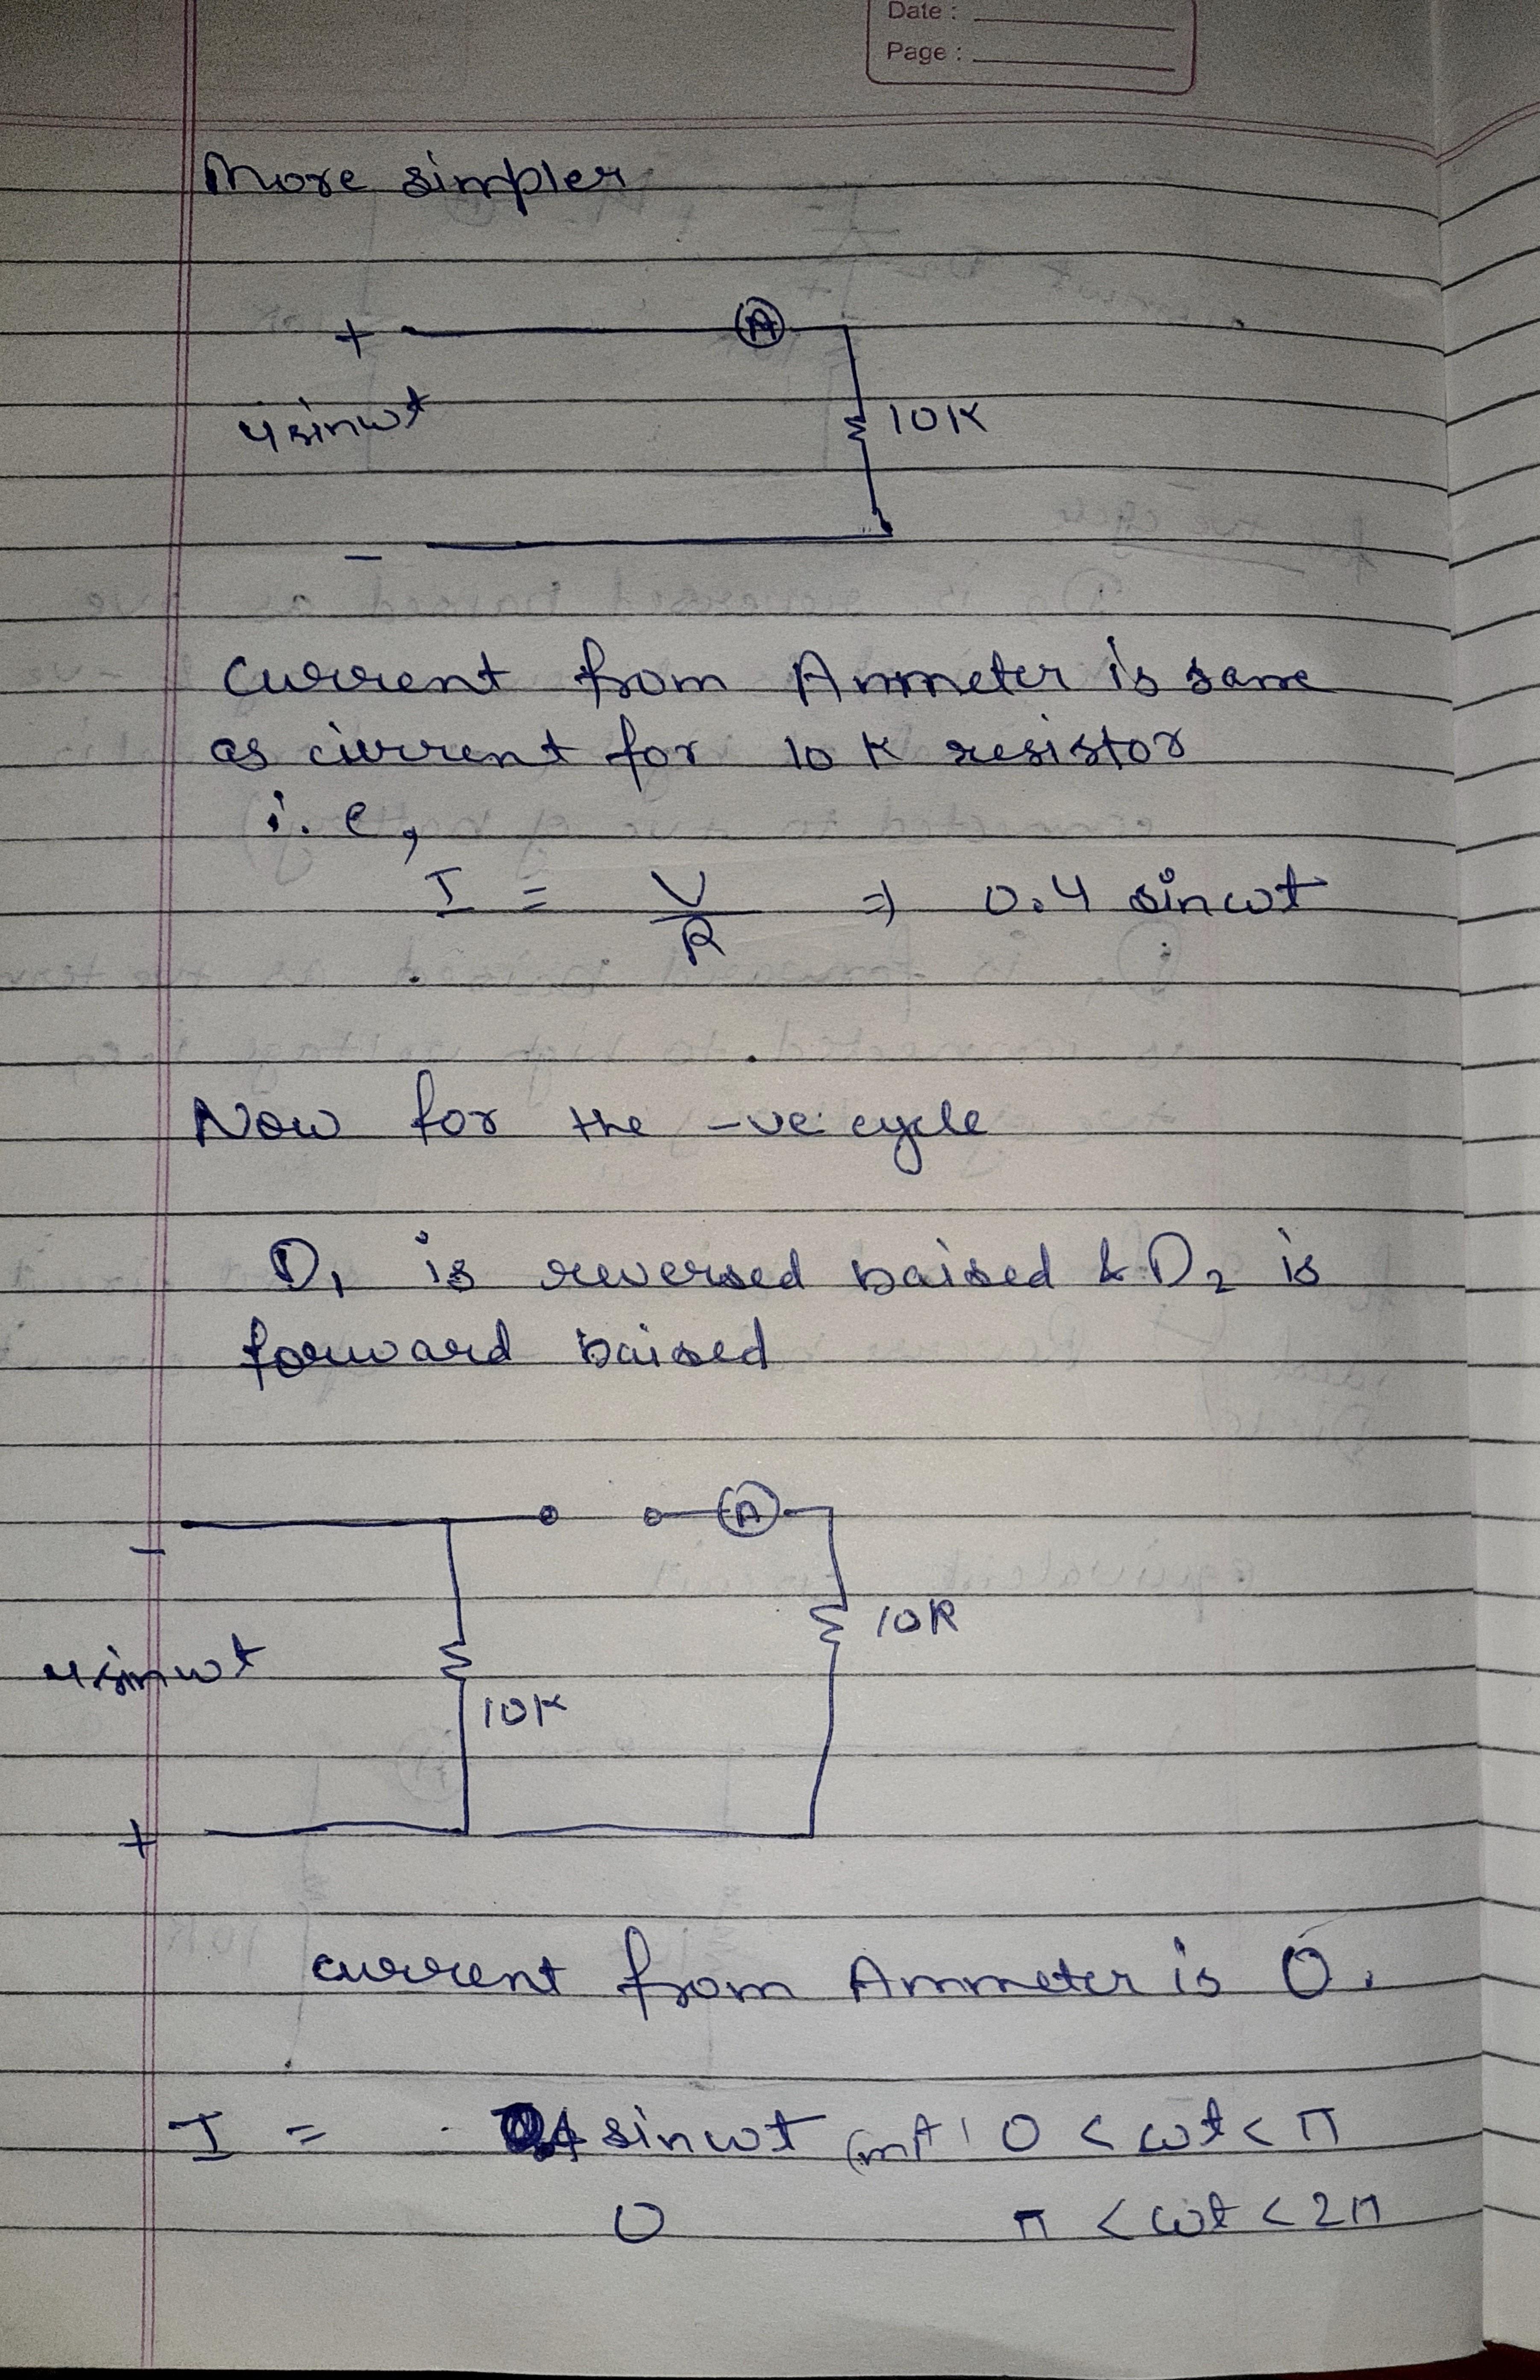 Date :
Page :
More simpler
+ A
4sinωt 10K
-
current from Ammeter is same
as current for 10 K resistor
i.e,
I = V/R ⇒ 0.4 sinωt
Now for the -ve cycle
D1 is reversed baised & D2 is
forward baised
- A
10K
4sinωt
10K
+
current from Ammeter is 0.
I = 0.4 sinωt (mA) 0 < ωt < π
0 π < ωt < 2π